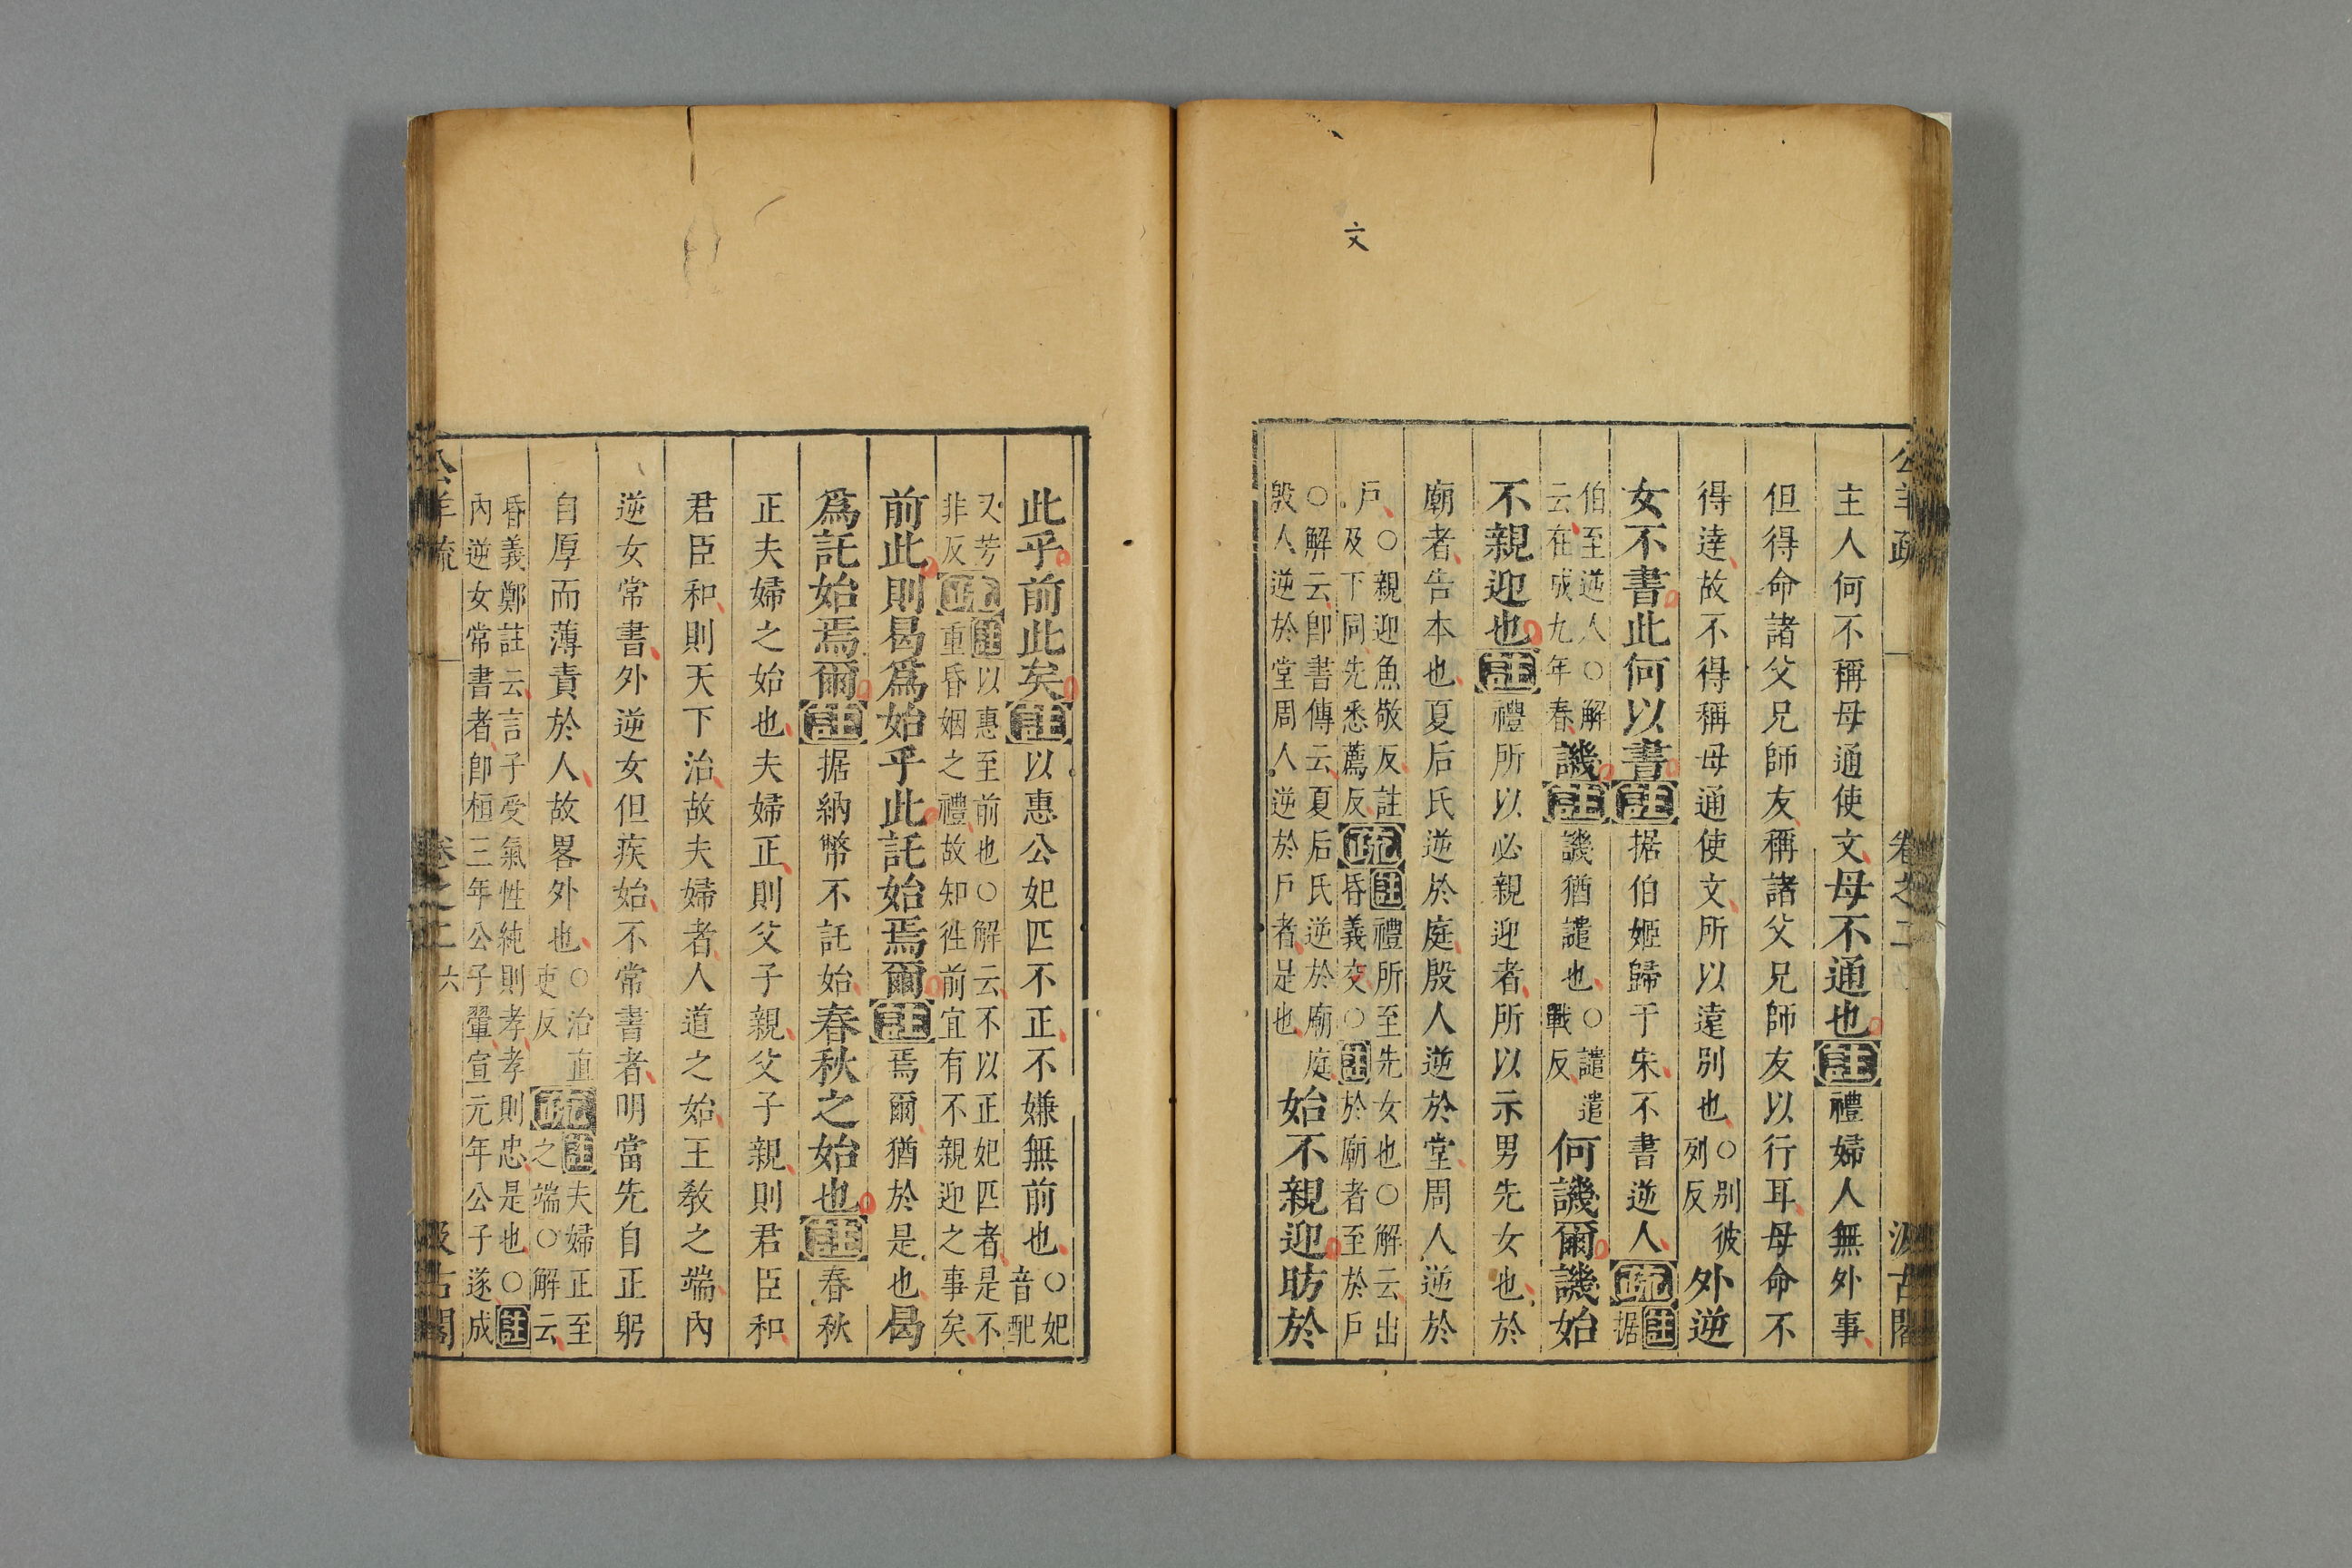 文
公羊疏 卷之二 汲古閣
主人何不稱母通使文母不通也註禮婦人無外事
但得命諸父兄師友稱諸父兄師友以行耳母命不
得達故不得稱母通使文所以遠別也○別彼列反外逆
女不書此何以書註据伯姬歸于宋不書逆人疏註据
伯至逆人○解云在成九年春譏註譏猶譴也○譴遣戰反何譏爾譏始
不親迎也註禮所以必親迎者所以示男先女也於
廟者告本也夏后氏逆於庭殷人逆於堂周人逆於
戶○親迎魚敬反註及下同先悉薦反疏註禮所至先女也○解云出昏義文○註於廟者至於戶
○解云卽書傳云夏后氏逆於廟庭殷人逆於堂周人逆於戶者是也始不親迎昉於
此乎前此矣註以惠公妃匹不正不嫌無前也○妃音配
又芳非反疏註以惠至前也○解云不以正妃匹者是不重昏姻之禮故知徃前宜有不親迎之事矣
前此則曷爲始乎此託始焉爾註焉爾猶於是也曷
爲託始焉爾註据納幣不託始春秋之始也註春秋
正夫婦之始也夫婦正則父子親父子親則君臣和
君臣和則天下治故夫婦者人道之始王敎之端內
逆女常書外逆女但疾始不常書者明當先自正躬
自厚而薄責於人故畧外也○治直吏反疏註夫婦正至之端○解云
昏義鄭註云言子受氣性純則孝孝則忠是也○註內逆女常書者卽桓三年公子翬宣元年公子遂成
公羊疏 卷之二 六 汲古閣